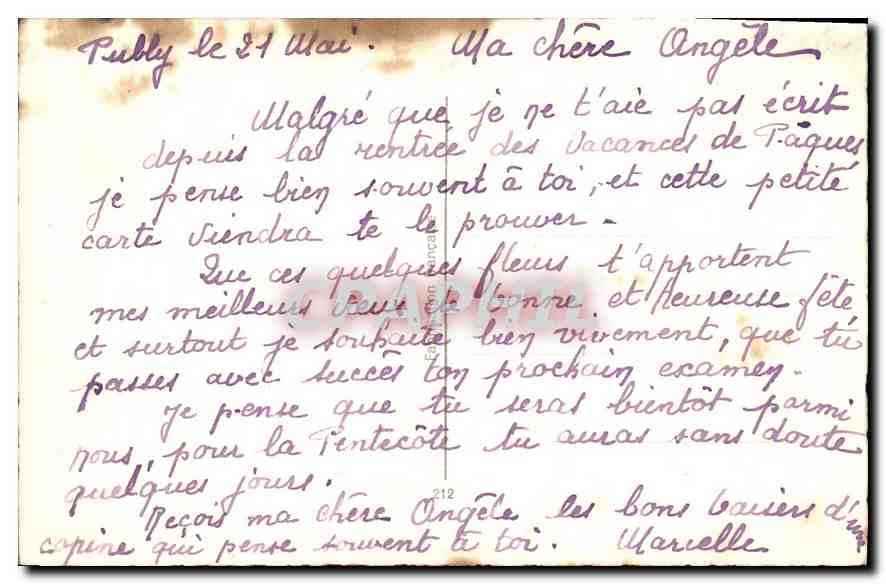 Publy le 21 Mai. Ma chère Angèle
Malgré que je ne t'aie pas écrit
depuis la rentrée des Vacances de Pâques
je pense bien souvent à toi, et cette petite
carte viendra te le prouver.
Que ces quelques fleurs t'apportent
mes meilleurs vœux de bonne et heureuse fête
et surtout je souhaite bien vivement, que tu
passes avec succès ton prochain examen.
Je pense que tu seras bientôt parmi
nous, pour la Pentecôte tu auras sans doute
quelques jours.
Reçois ma chère Angèle les bons baisers d'une
copine qui pense souvent à toi. Marcelle
Fabrication Française
212
CPAPHIL